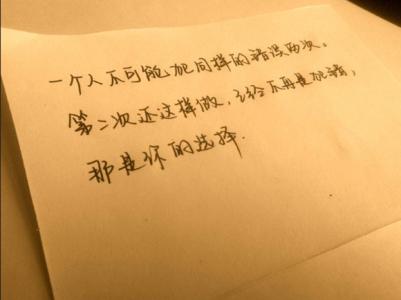 一个人不可能犯同样的错误两次。
第二次还这样做，已经不再是犯错，
那是你的选择.